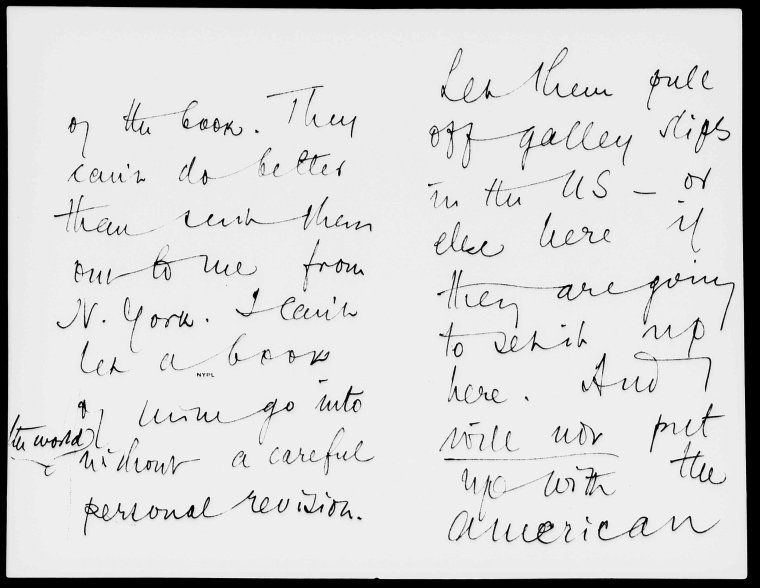 of the book. They
can't do better
than send them
out to me from
N. York. I can't
let a book
NYPL
of mine go into
the world
without a careful
personal revision.
Let them pull
off galley slips
in the US – or
else here if
they are going
to set it up
here. And I
will not put
up with the
American